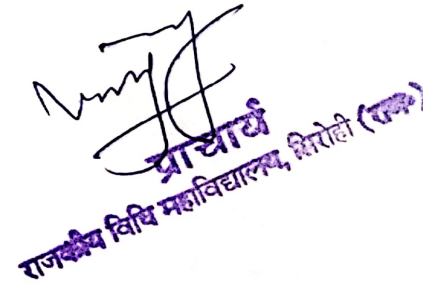 प्राचार्य
राजकीय विधि महाविद्यालय, सिरोही (राज०)